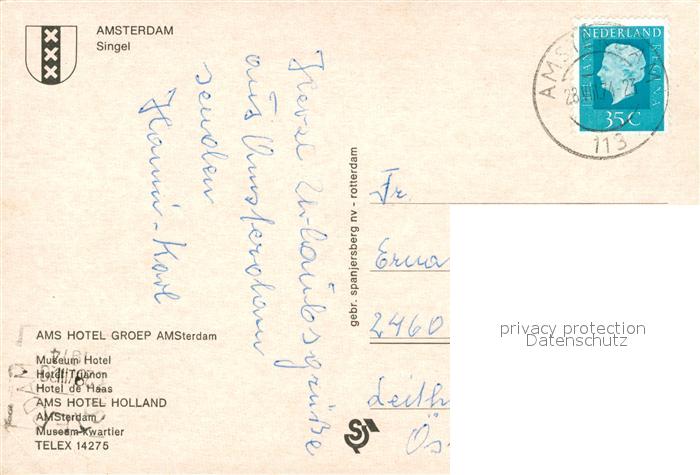 AMSTERDAM
Singel
NEDERLAND
JULIANA REGINA
35 C
AMSTERDAM
113
Herzl Urlaubsgrüße
aus Amsterdam
senden
Hanni-Karl
gebr. spanjersberg nv - rotterdam
Fr.
Erna
2460
Leith
Ös
privacy protection
Datenschutz
AMS HOTEL GROEP AMSterdam
Museum Hotel
Hotel Trianon
Hotel de Haas
AMS HOTEL HOLLAND
AMSterdam
Museum-kwartier
TELEX 14275